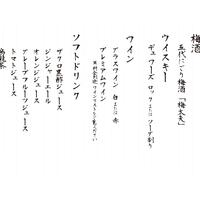 梅酒
五代にごり梅酒「梅太夫」
ウイスキー
デュワーズ ロックまたはソーダ割り
ワイン
グラスワイン 白または赤
プレミアムワイン
ソフトドリンク
ザクロ黒酢ジュース
ジンジャーエール
オレンジジュース
グレープフルーツジュース
トマトジュース
烏龍茶